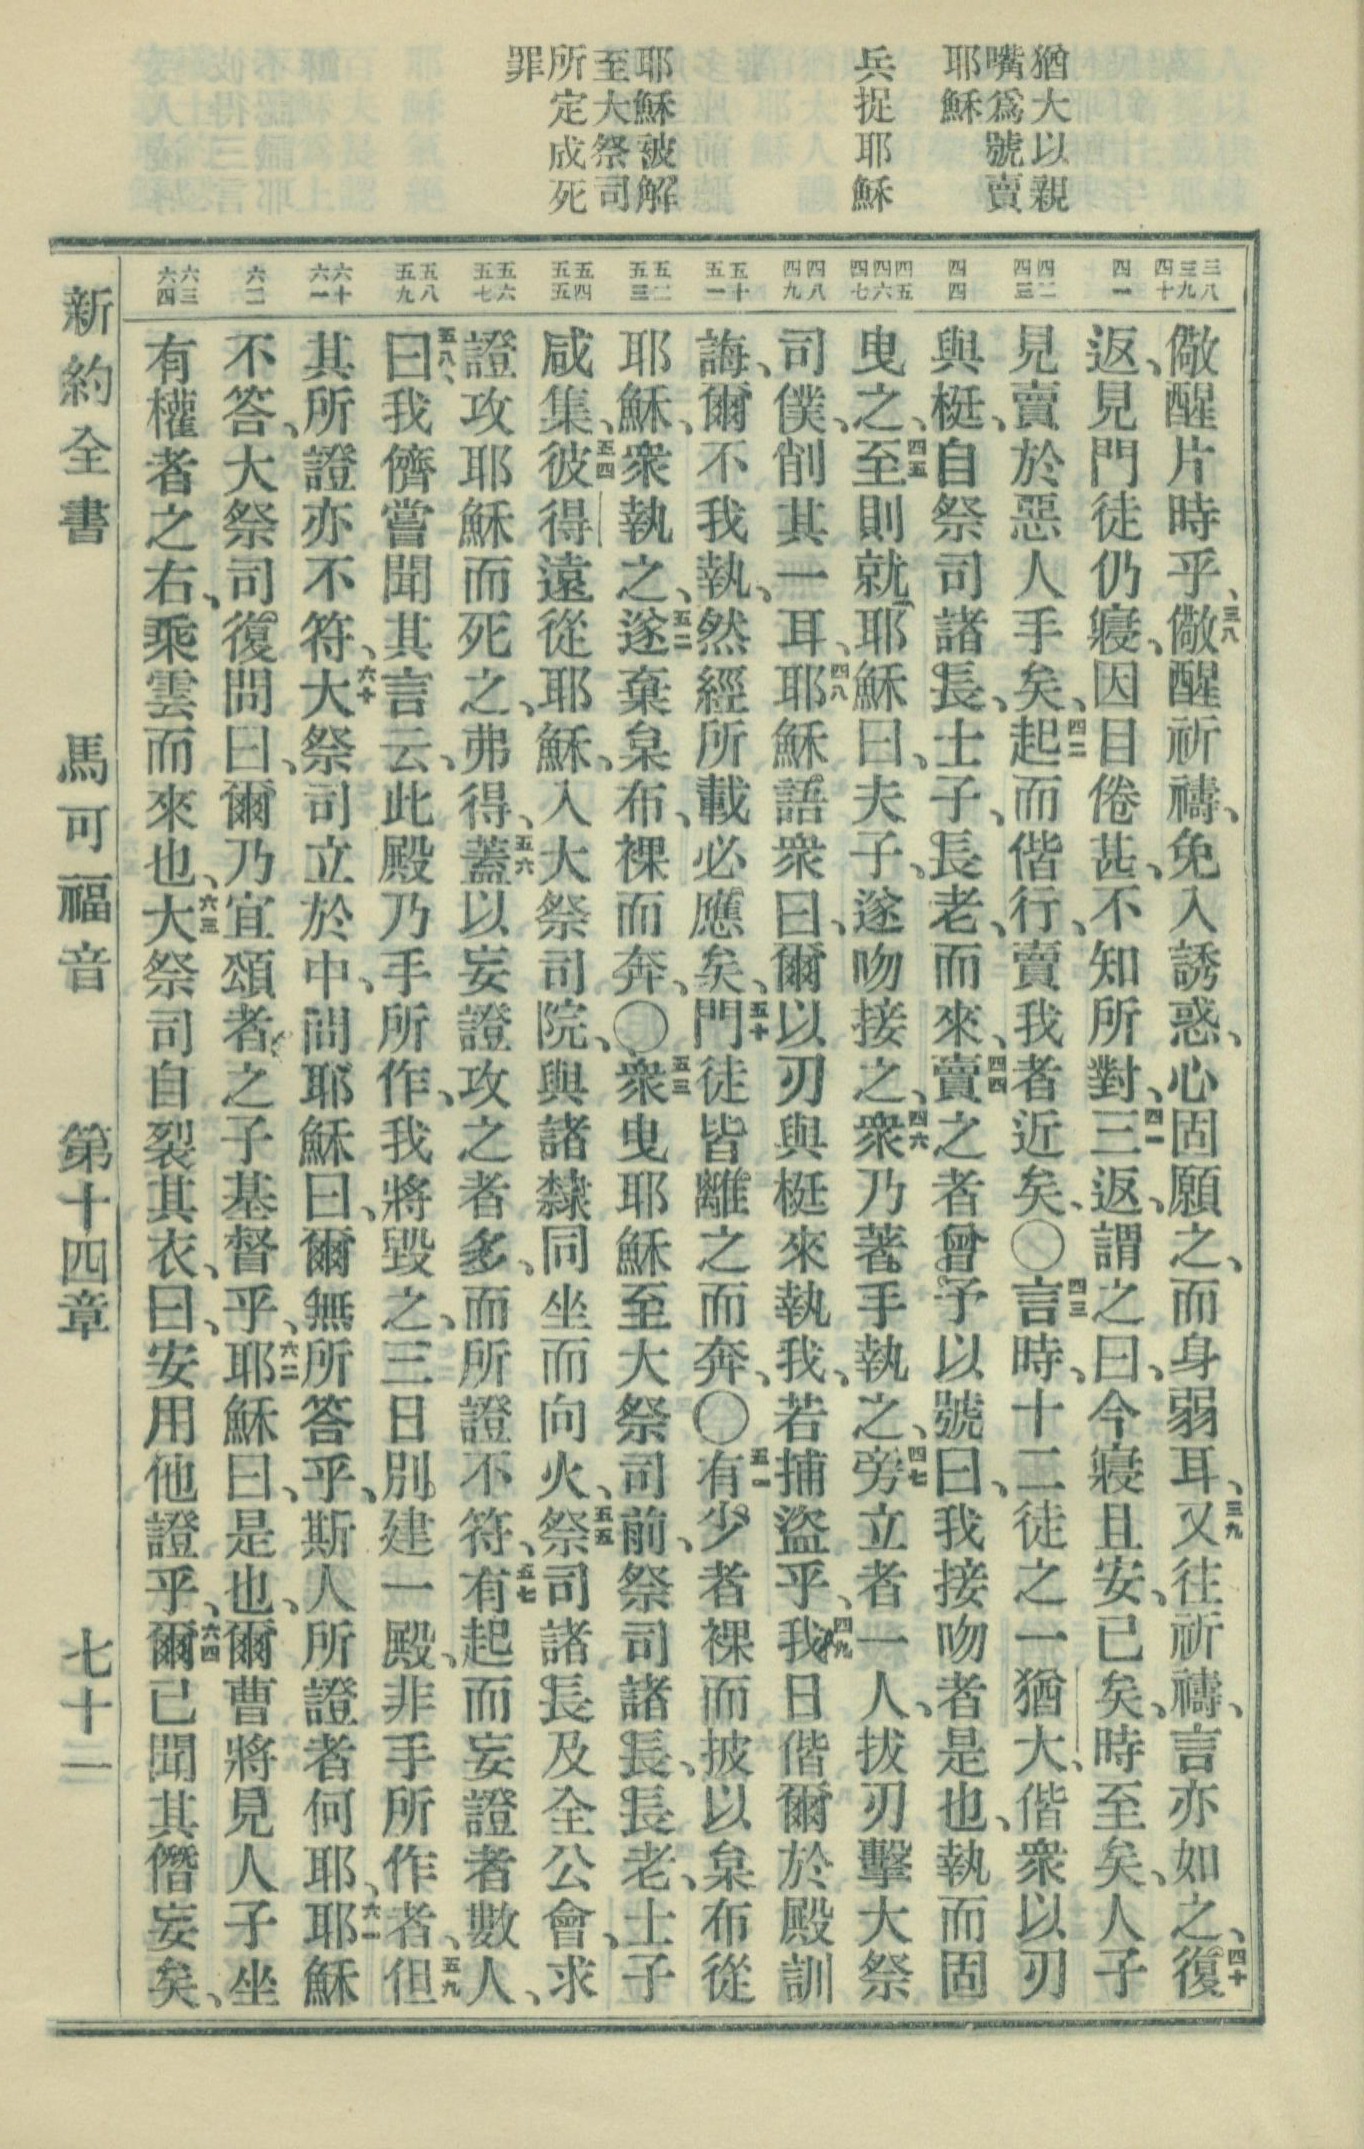 猶大以親
嘴爲號賣
耶穌
兵捉耶穌
耶穌被解
至大祭司
所定成死
罪
三八
三九
四十
四一
四二
四三
四四
四五
四六
四七
四八
四九
五十
五一
五二
五三
五四
五五
五六
五七
五八
五九
六十
六一
六二
六三
六四
儆醒片時乎、三八儆醒祈禱、免入誘惑、心固願之、而身弱耳、三九又往祈禱、言亦如之、四十復
返、見門徒仍寢、因目倦甚、不知所對、四一三返、謂之曰、今寢且安、已矣、時至矣、人子
見賣於惡人手矣、四二起而偕行、賣我者近矣、〇四三言時、十二徒之一猶大、偕衆以刃
與梃、自祭司諸長、士子、長老、而來、四四賣之者曾予以號曰、我接吻者是也、執而固
曳之、四五至則就耶穌曰、夫子、遂吻接之、四六衆乃著手執之、四七旁立者一人、拔刃擊大祭
司僕、削其一耳、四八耶穌語衆曰、爾以刃與梃來執我、若捕盜乎、四九我日偕爾於殿訓
誨、爾不我執、然經所載必應矣、五十門徒皆離之而奔、〇五一有少者裸而披以枲布從
耶穌、衆執之、五二遂棄枲布、裸而奔、〇五三衆曳耶穌至大祭司前、祭司諸長、長老、士子
咸集、五四彼得遠從耶穌、入大祭司院、與諸隸同坐而向火、五五祭司諸長及全公會、求
證攻耶穌而死之、弗得、五六蓋以妄證攻之者多、而所證不符、五七有起而妄證者數人、
五八曰、我儕嘗聞其言云、此殿乃手所作、我將毀之、三日別建一殿、非手所作者、五九但
其所證亦不符、六十大祭司立於中、問耶穌曰、爾無所答乎、斯人所證者何耶、六一耶穌
不答、大祭司復問曰、爾乃宜頌者之子基督乎、六二耶穌曰、是也、爾曹將見人子坐
有權者之右、乘雲而來也、六三大祭司自裂其衣、曰、安用他證乎、六四爾已聞其僭妄矣、
新約全書　馬可福音　第十四章　七十二